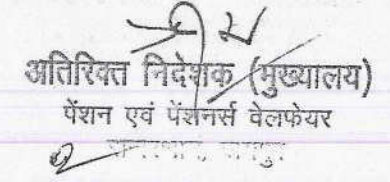 अतिरिक्त निदेशक (मुख्यालय)
पेंशन एवं पेंशनर्स वेलफेयर